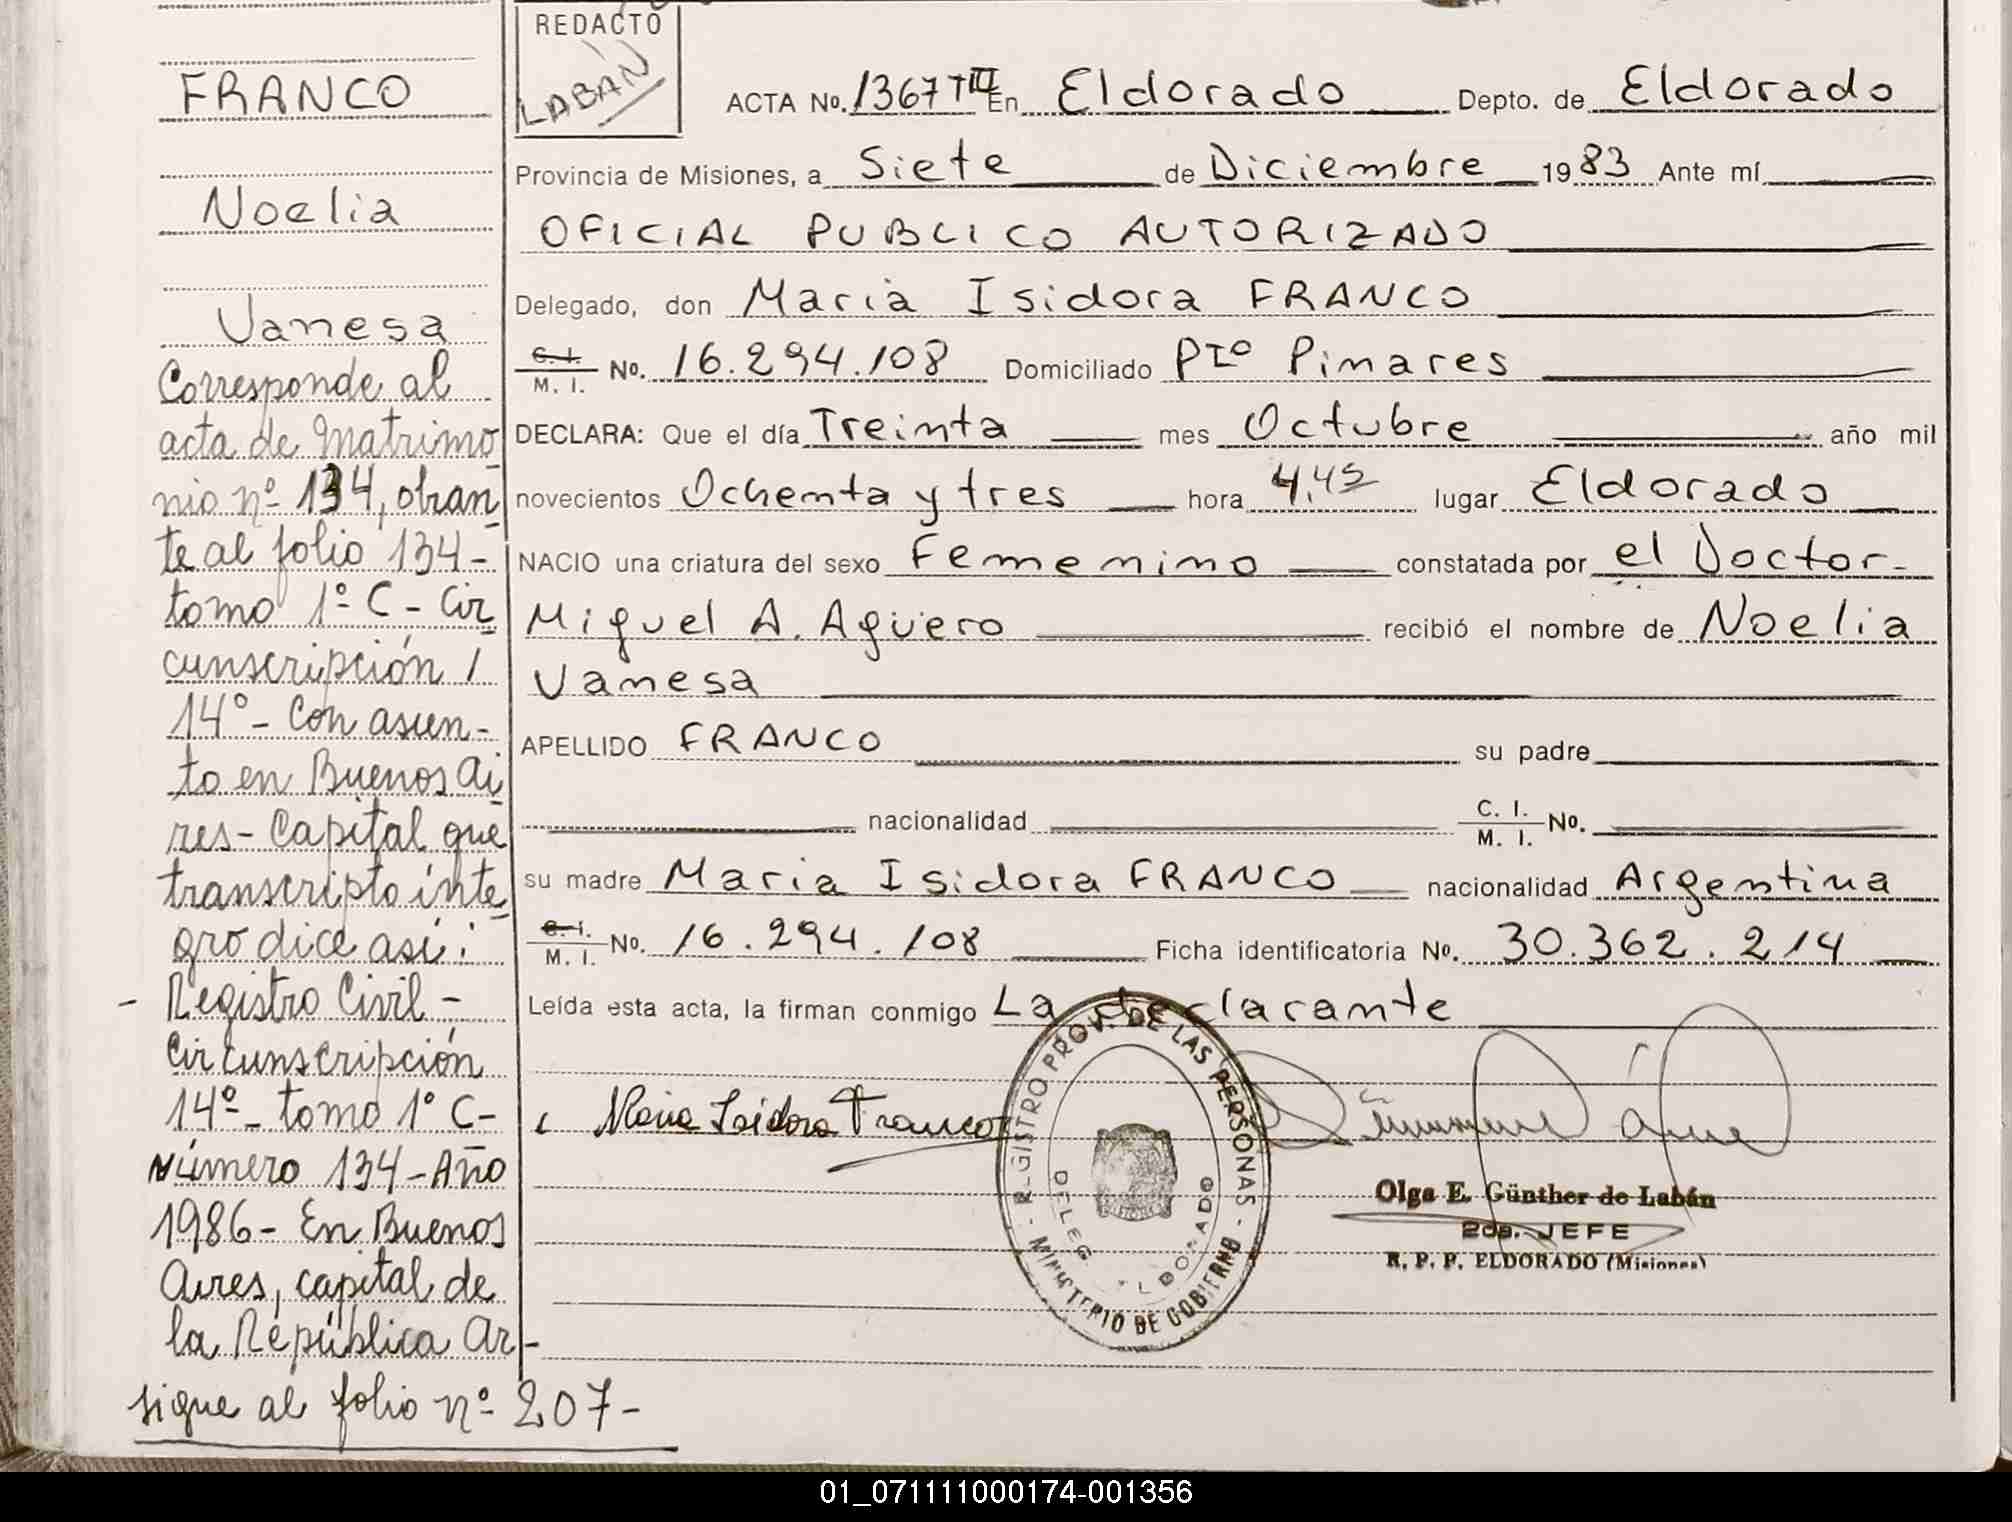 FRANCO
Noelia
Vanesa
Corresponde al
acta de Matrimo
nio nº 134, obran
te al folio 134-
tomo 1º C - Cir
cunscripción /
14º - Con asien-
to en Buenos Ai
res - Capital que
transcripto ínte
gro dice así:
- Registro Civil -
Circunscripción
14º - tomo 1º C-
Número 134 - Año
1986 - En Buenos
Aires, capital de
la República Ar-
sigue al folio nº 207-
REDACTO
LABAN
ACTA No. 1367 TIII En Eldorado Depto. de Eldorado
Provincia de Misiones, a Siete de Diciembre 1983 Ante mí
OFICIAL PUBLICO AUTORIZADO
Delegado, don Maria Isidora FRANCO
C. I. / M. I. No. 16.294.108 Domiciliado Pto Pinares
DECLARA: Que el día Treinta mes Octubre año mil
novecientos Ochenta y tres hora 4,45 lugar Eldorado
NACIO una criatura del sexo Femenino constatada por el Doctor-
Miguel A. Agüero recibió el nombre de Noelia
Vanesa
APELLIDO FRANCO su padre
nacionalidad C. I. / M. I. No.
su madre Maria Isidora FRANCO nacionalidad Argentina
C. I. / M. I. No. 16.294.108 Ficha identificatoria No. 30.362.214
Leída esta acta, la firman conmigo La declarante
Maria Isidora Franco
REGISTRO PROV. DE LAS PERSONAS - MINISTERIO DE GOBIERNO -
DELEG. ELDORADO
Olga E. Günther de Labán
2da. JEFE
R. P. P. ELDORADO (Misiones)
01_071111000174-001356